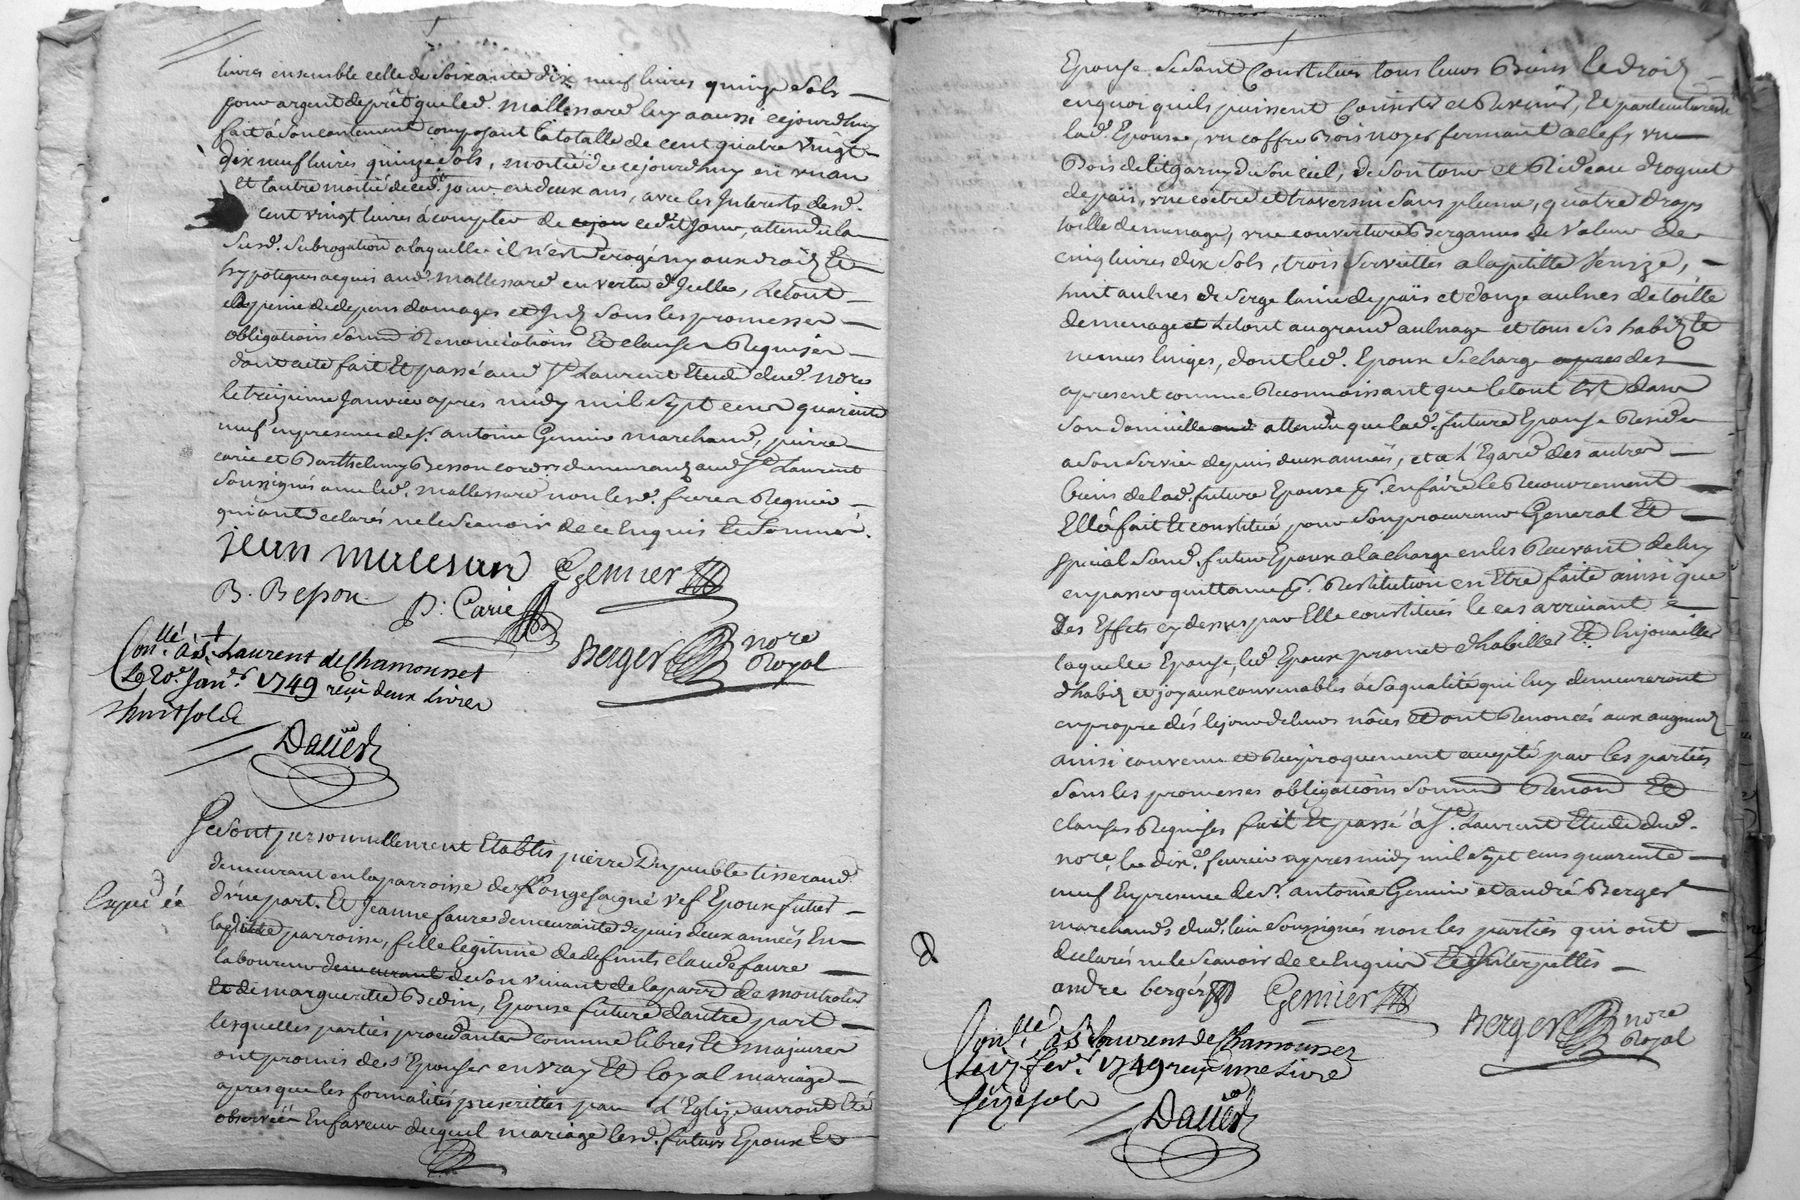 livres ensemble celle de soixante dix neuf livres quinze sols
pour argent de prêt que led. Mallessard luy a aussi cejourdhuy
fait à son contentement composant la totalle de cent quatre vingt
dix neuf livres quinze sols, moitié de cejourdhuy en un an
et l'autre moitié de ced. jour en deux ans, avec les Interests desd.
cent vingt livres à compter de cedit jour, attendu la
susd. subrogation a laquelle il n'est derogé ny aux droits et
hypoteques acquis aud. Mallessard en vertu d'Jcelle, Le tout
a peine de depens domages et sous les promesses
obligations Renonciations et clauses Requises
dont acte fait Et passé aud. St. Laurent Etude dud. nore
le treizieme Janvier apres midy mil sept cens quarente
neuf en presence de sr. antoine Genier marchand, pierre
carie et Barthelemy Besson demeurants aud. St. Laurent
soussignés avec led. Mallessard non lesd. freres
qui ont declarés ne le scavoir de ce Enquis et sommés.
jean malesard Genier
B. Besson P. Carie
Berger nore
Royal
Con.llé à St. Laurent de Chamousset
Le 20e. Janr. 1749 reçu deux Livres
huit sols
Daues
Se sont personnellement Etablis pierre Dupueble tisserand
demeurant en la parroisse de Longesaigne vef Epoux futur
Expediée
d'une part. Et Jeanne faure demeurante depuis deux années En
ladite parroisse, fille legitime de defunts claude faure
laboureur demeurant de son vivant de la parr. de montrotier
Et de marguerite Bedin, Epouse future d'autre part
lesquelles parties procedantes comme libres Et majeures
ont promis de s'Epouser en vray Et loyal mariage
apres que les formalités prescrittes par L'Eglize auront Eté
observéés En faveur duquel mariage lesd. futurs Epoux Et
Epouse se sont Constitués tous leurs Biens et droits
en quoi qu'ils puissent Consister et Revenir, Et particulierement
lad. Epouse, un coffre Bois noyer fermant a clef, un
Bois de lit garny de son ciel, de son tour et Rideau droguet
de païs, une coetre et traversin sans plume, quatre draps
toille de menage, une couverture Bergame de valeur de
cinq livres dix sols, trois serviettes a la petitte Venize,
huit aulnes de serge laine de païs et donze aulnes de toille
de menage et le tout au grand aulnage et tous ses habits et
menus linges, dont led. Epoux se charge apres des
apresent comme Reconnoissant que le tout Est dans
son domicille attendu que lad. future Epouse Reside
a son service depuis deux années, et a l'Egard des autres
biens de lad. future Epouse pr. en faire le Recouvrement
Elle à fait Et constitué pour son procureur General Et
special sond. futur Epoux a la charge en les Recevant de luy
en passer quittance pr. Restitution en Etre faite ainsi que
Des Effets cy dessus par Elle constitués le cas arrivant a
laquelle Epouse, led. Epoux promet d'habiller Et Enjouailler
d'habits et joyaux convenables à sa qualité qui luy demeureront
en propre dés le jour de leurs nôces et ont Renoncés aux augments
ainsi convenu et Reciproquement accepté par les parties
sous les promesses obligations Renon. Et
clauses Requises fait Et passé à St. Laurent Etude dud.
nore, le dixe. fevrier apres midy mil sept cens quarente
neuf En presence de sr. antoine Genier et andré Berger
marchands dud. lieu soussignés non les parties qui ont
declarés ne le scavoir de ce Enquis Et Interpellés
andre berger Genier
Berger nore
Royal
Con.llé à St. Laurent de Chamousset
Le 17 fevr. 1749 reçu une Livre
seize sols
Daues